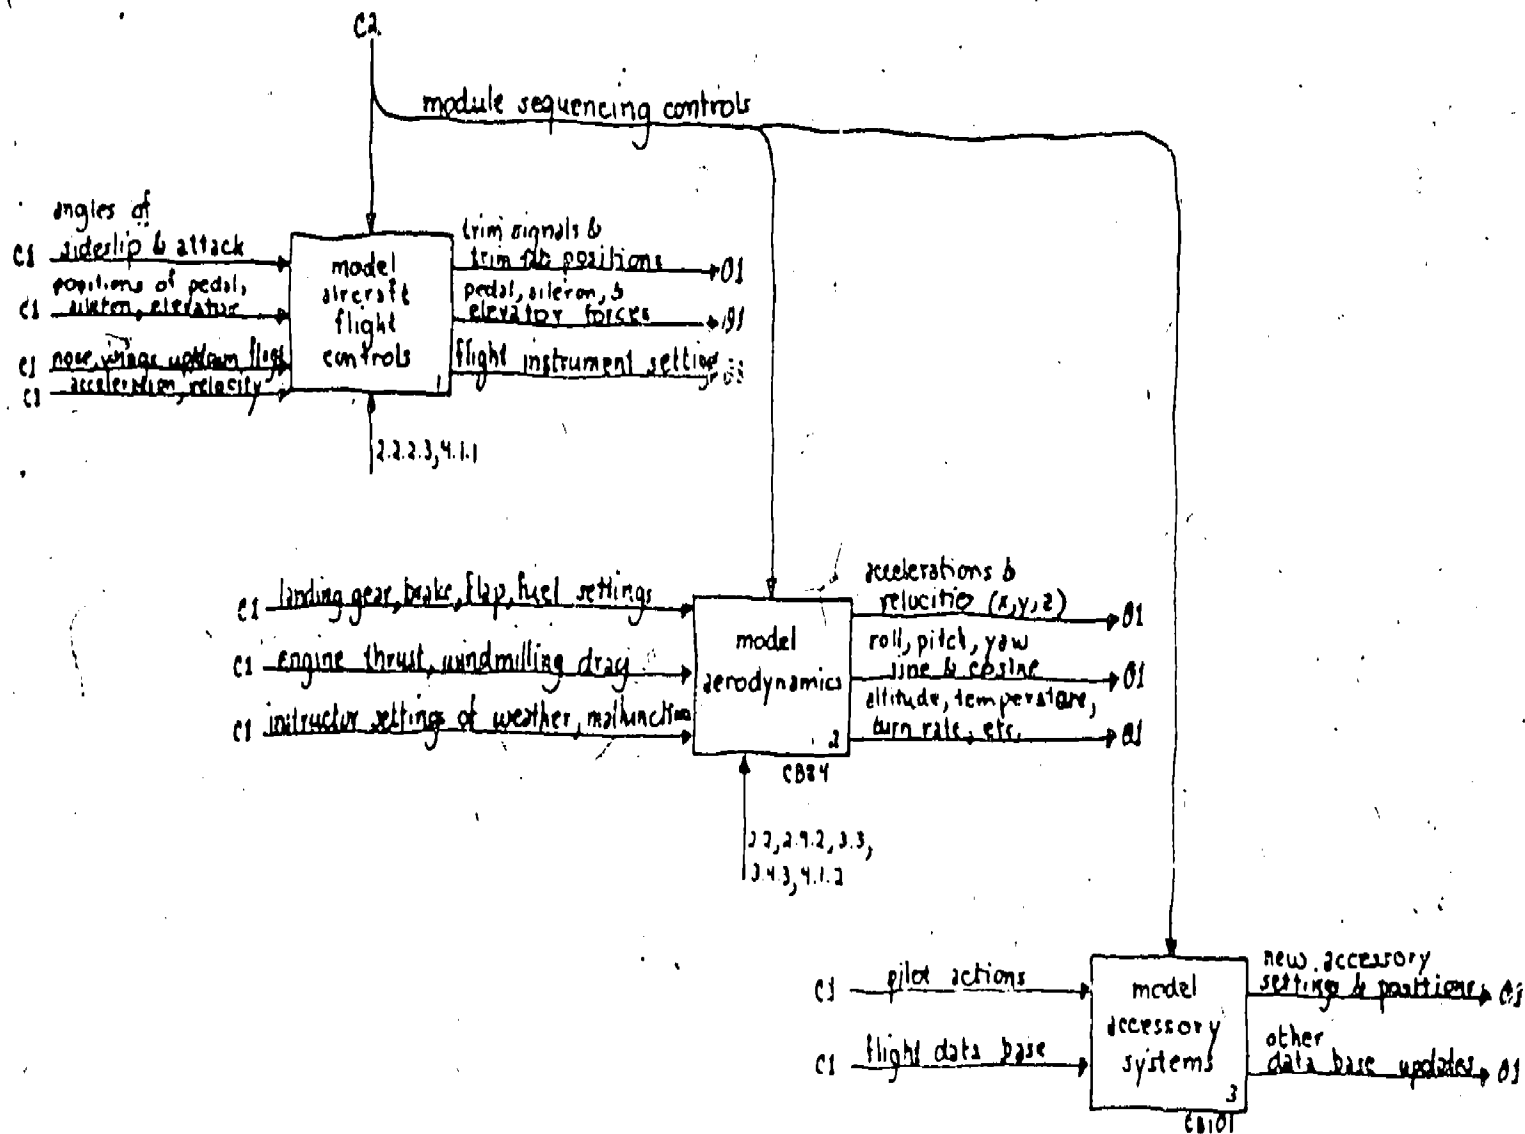 C2
module sequencing controls
angles of
C1 sideslip & attack
positions of pedal,
C1 aileron, elevator
C1 nose, wings up/down
C1 acceleration, velocity
model
aircraft
flight
controls
1
trim signals &
trim tab positions O1
pedal, aileron, &
elevator forces O1
flight instrument settings
2.2.2.3, 4.1.1
C1 landing gear, brake, flap, fuel settings
C1 engine thrust, windmilling drag
C1 instructor settings of weather, malfunctions
model
aerodynamics
2
CB84
accelerations &
velocities (x, y, z) O1
roll, pitch, yaw
sine & cosine O1
altitude, temperature,
turn rate, etc. O1
2.4.2, 3.3,
3.4.3, 4.1.2
C1 pilot actions
C1 flight data base
model
accessory
systems
3
CB101
new accessory
settings & positions O1
other
data base updates O1